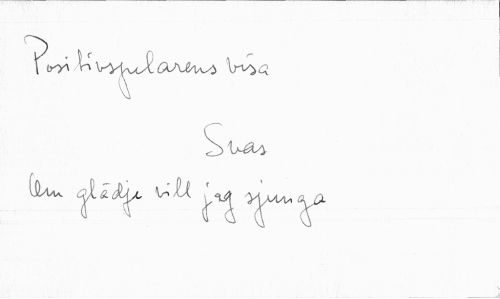 Positivspelarens visa
Svas
Om glädje vill jag sjunga